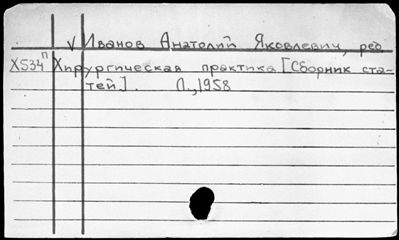 √ Иванов Анатолий Яковлевич, ред
X534п Хирургическая практика [Сборник ста-
тей]. Л., 1958